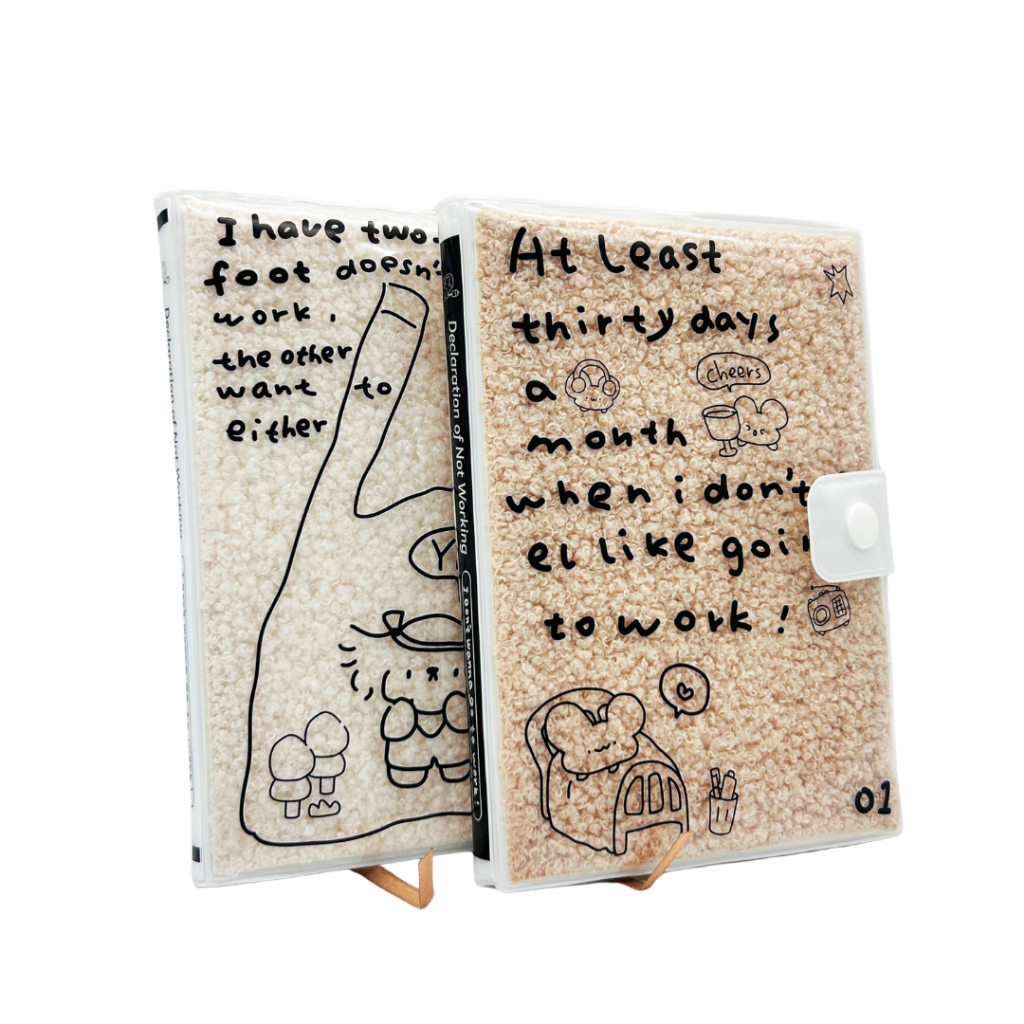 I have two
foot doesn't
work.
the other
want to
either
Y
Declaration of Not Working
Declaration of Not Working I don't wanna go to work!
At least
thirty days
a
cheers
month
when i don't
el like goin
to work!
01